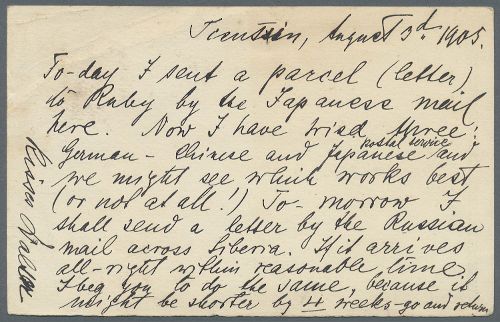 Tientsin, August 3d. 1905.
To-day I sent a parcel (letter)
to Ruby by the Japanese mail
here. Now I have tried three:
German - Chinese and Japanese postal service and
we might see which works best
(or not at all!) To-morrow I
shall send a letter by the Russian
mail across Siberia. If it arrives
all-right within reasonable time,
I beg you to do the same, because it
might be shorter by 4 weeks - go and return
Kisses